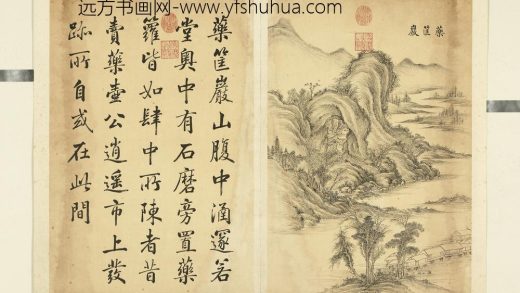 远方书画网-www.yfshuhua.com
藥筐巖
藥筐巖山腹中涵邃若
堂奧中有石磨旁置藥
籮皆如肆中所陳者昔
賣藥壺公逍遙市上發
跡所自或在此間